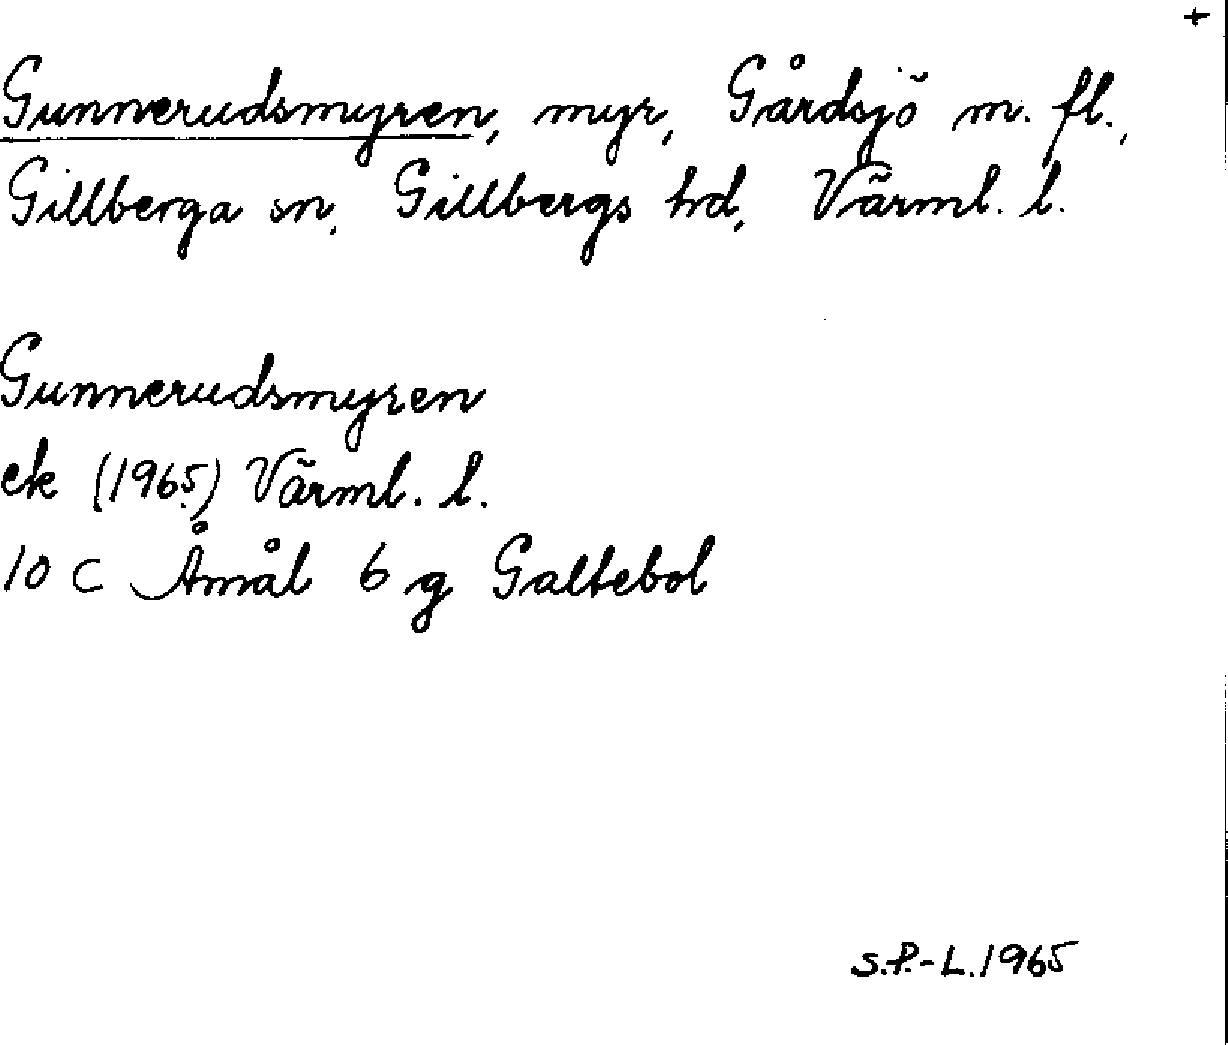 +
Gunnerudsmyren, myr, Gårdsjö m. fl.,
Gillberga sn, Gillbergs hd, Värml. l.
Gunnerudsmyren
ek (1965) Värml. l.
10 C Åmål 6 g Galtebol
S.P.-L. 1965